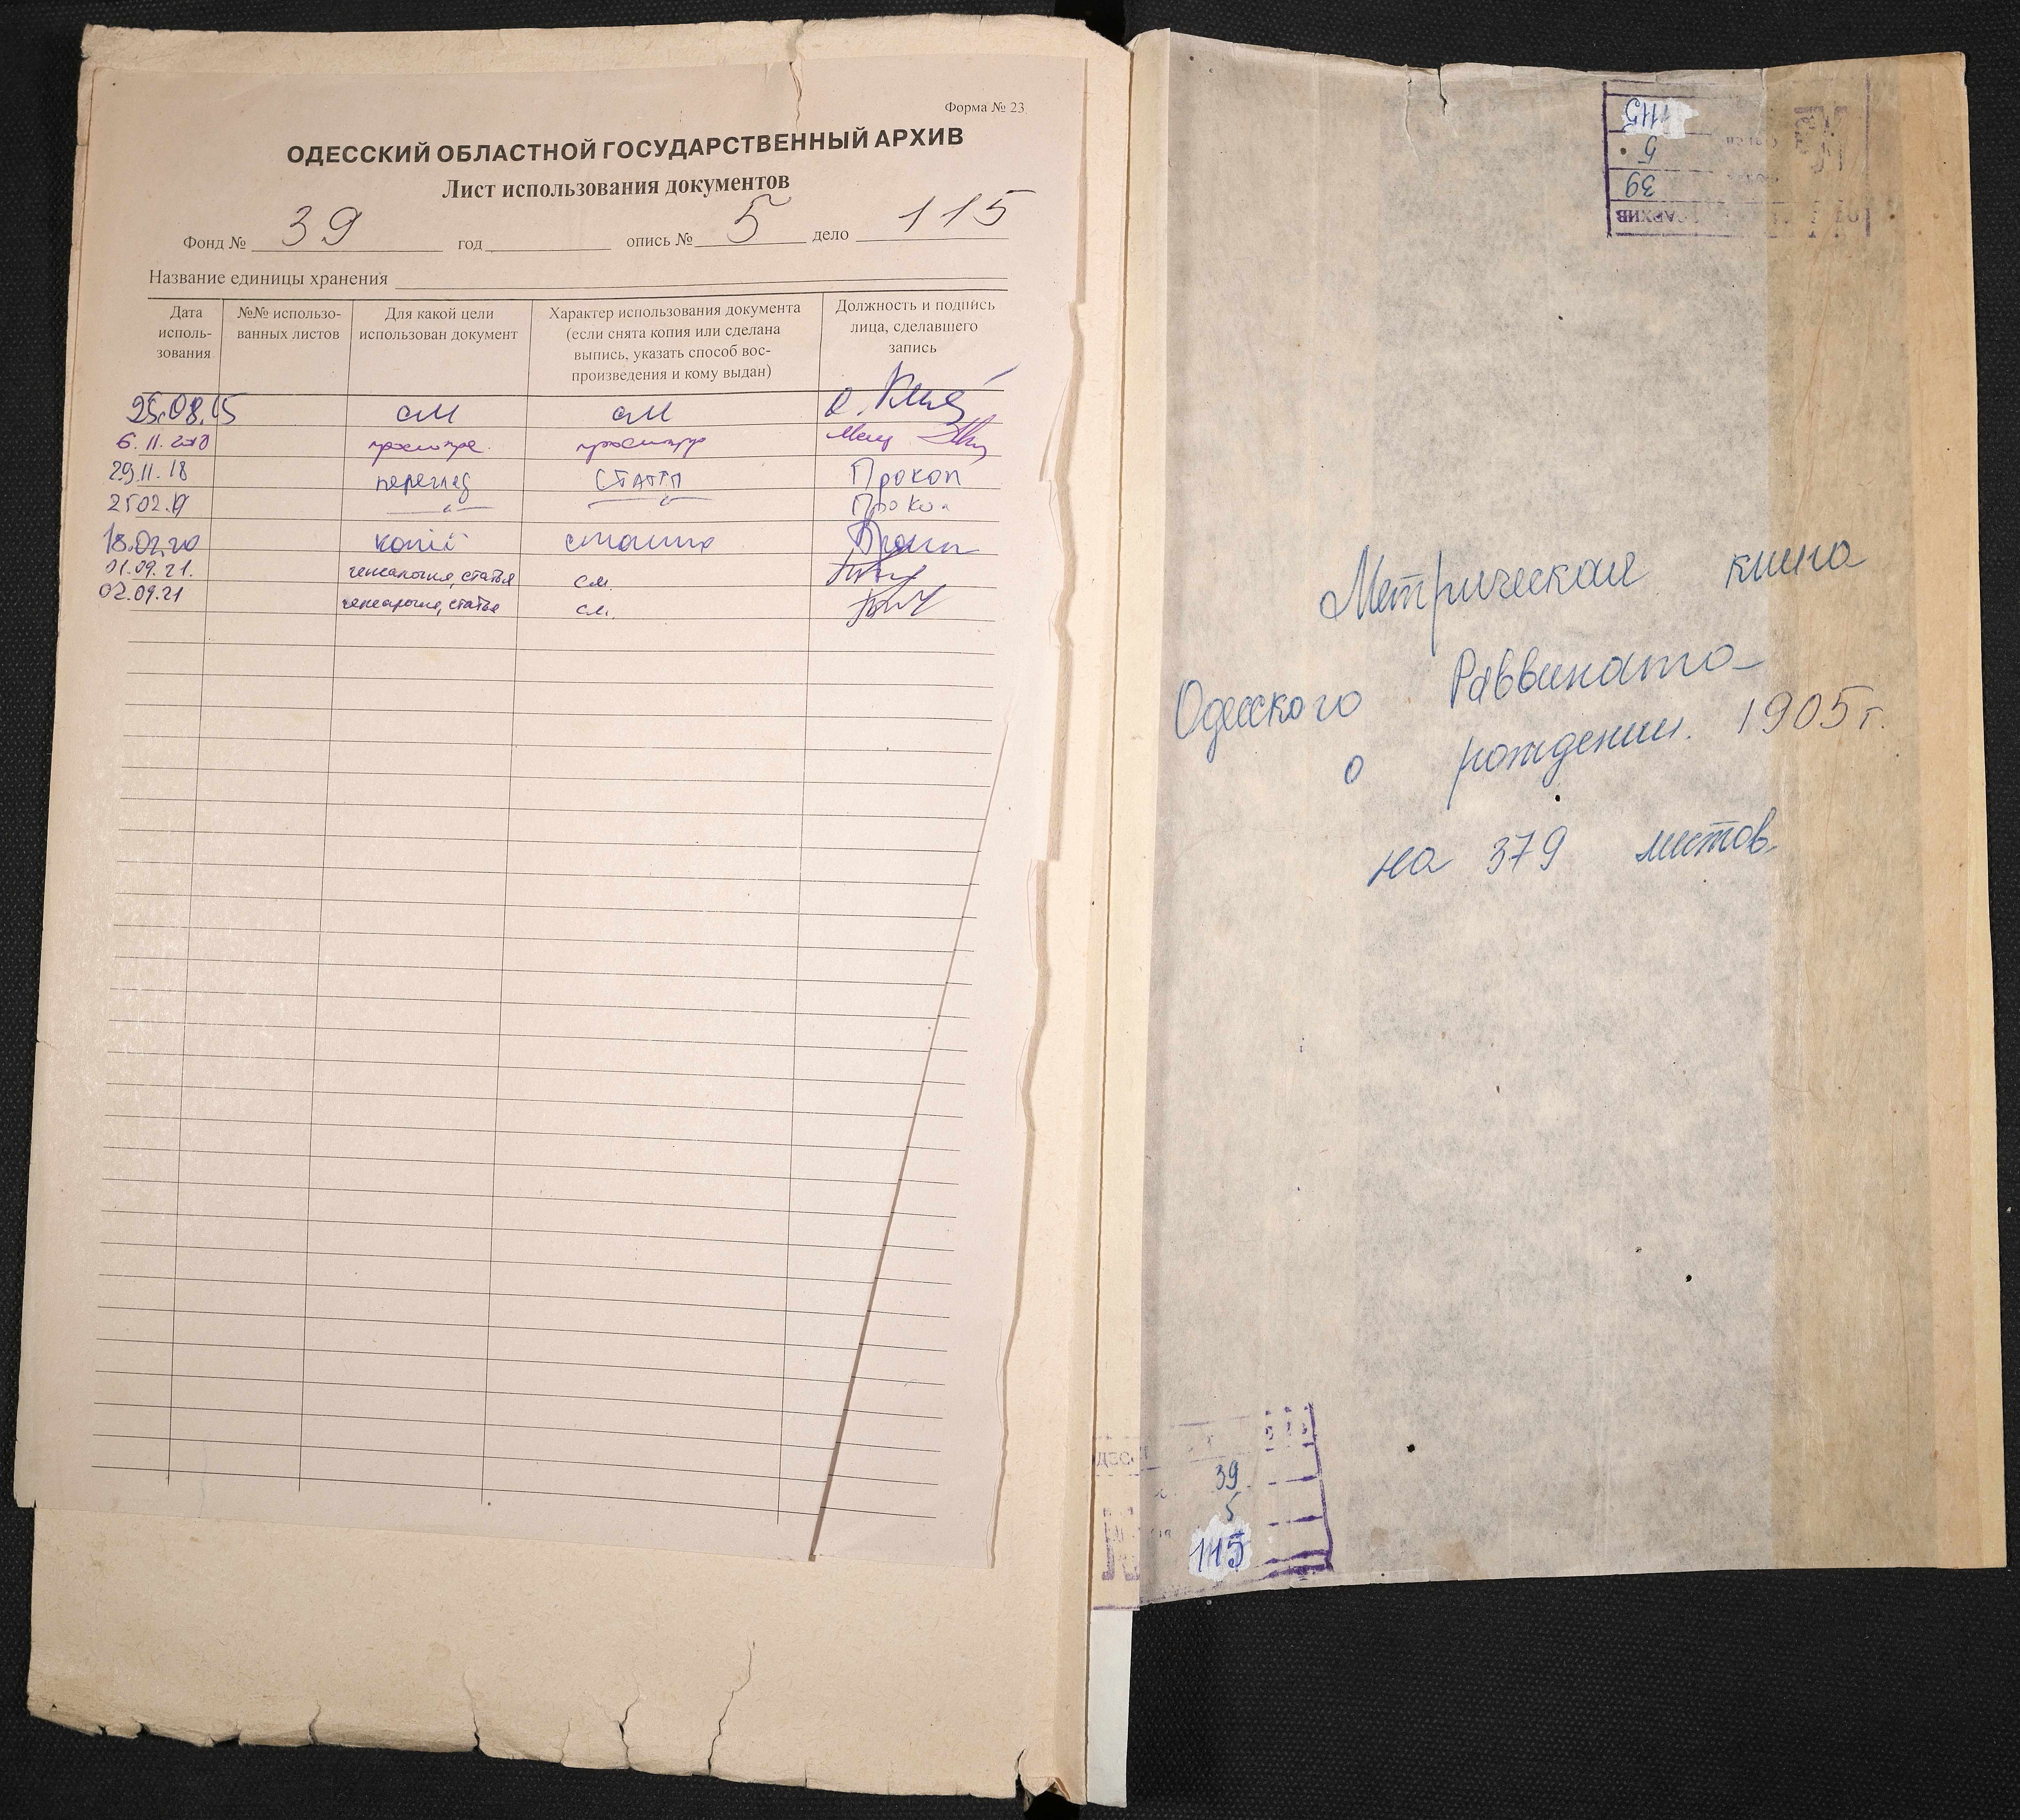 Форма № 23
ОДЕССКИЙ ОБЛАСТНОЙ ГОСУДАРСТВЕННЫЙ АРХИВ
Лист использования документов
Фонд № 39 год опись № 5 дело 115
Название единицы хранения
Дата исполь-зования
№№ использо-ванных листов
Для какой цели использован документ
Характер использования документа (если снята копия или сделана выпись, указать способ вос-произведения и кому выдан)
Должность и подпись лица, сделавшего запись
25.08.15 см см
6.11.2018
29.11.18 перегляд статті Прокоп
25.02.19 Прокоп
18.02.20 копії
01.09.21. генеалогия, статья см.
02.09.21 генеалогия, статья см.
115
5
39
АРХИВ
Метрическая книга
Одесского Раввината
о рождении. 1905 г.
на 379 листов
39
5
115